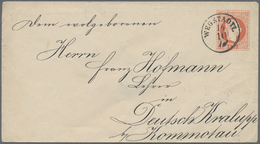 Dem wolgebornen
Herrn
Franz Hofmann
Lehrer
in
Deutsch Kralupp
b/ Kommotau
WEGSTAEDTL
10